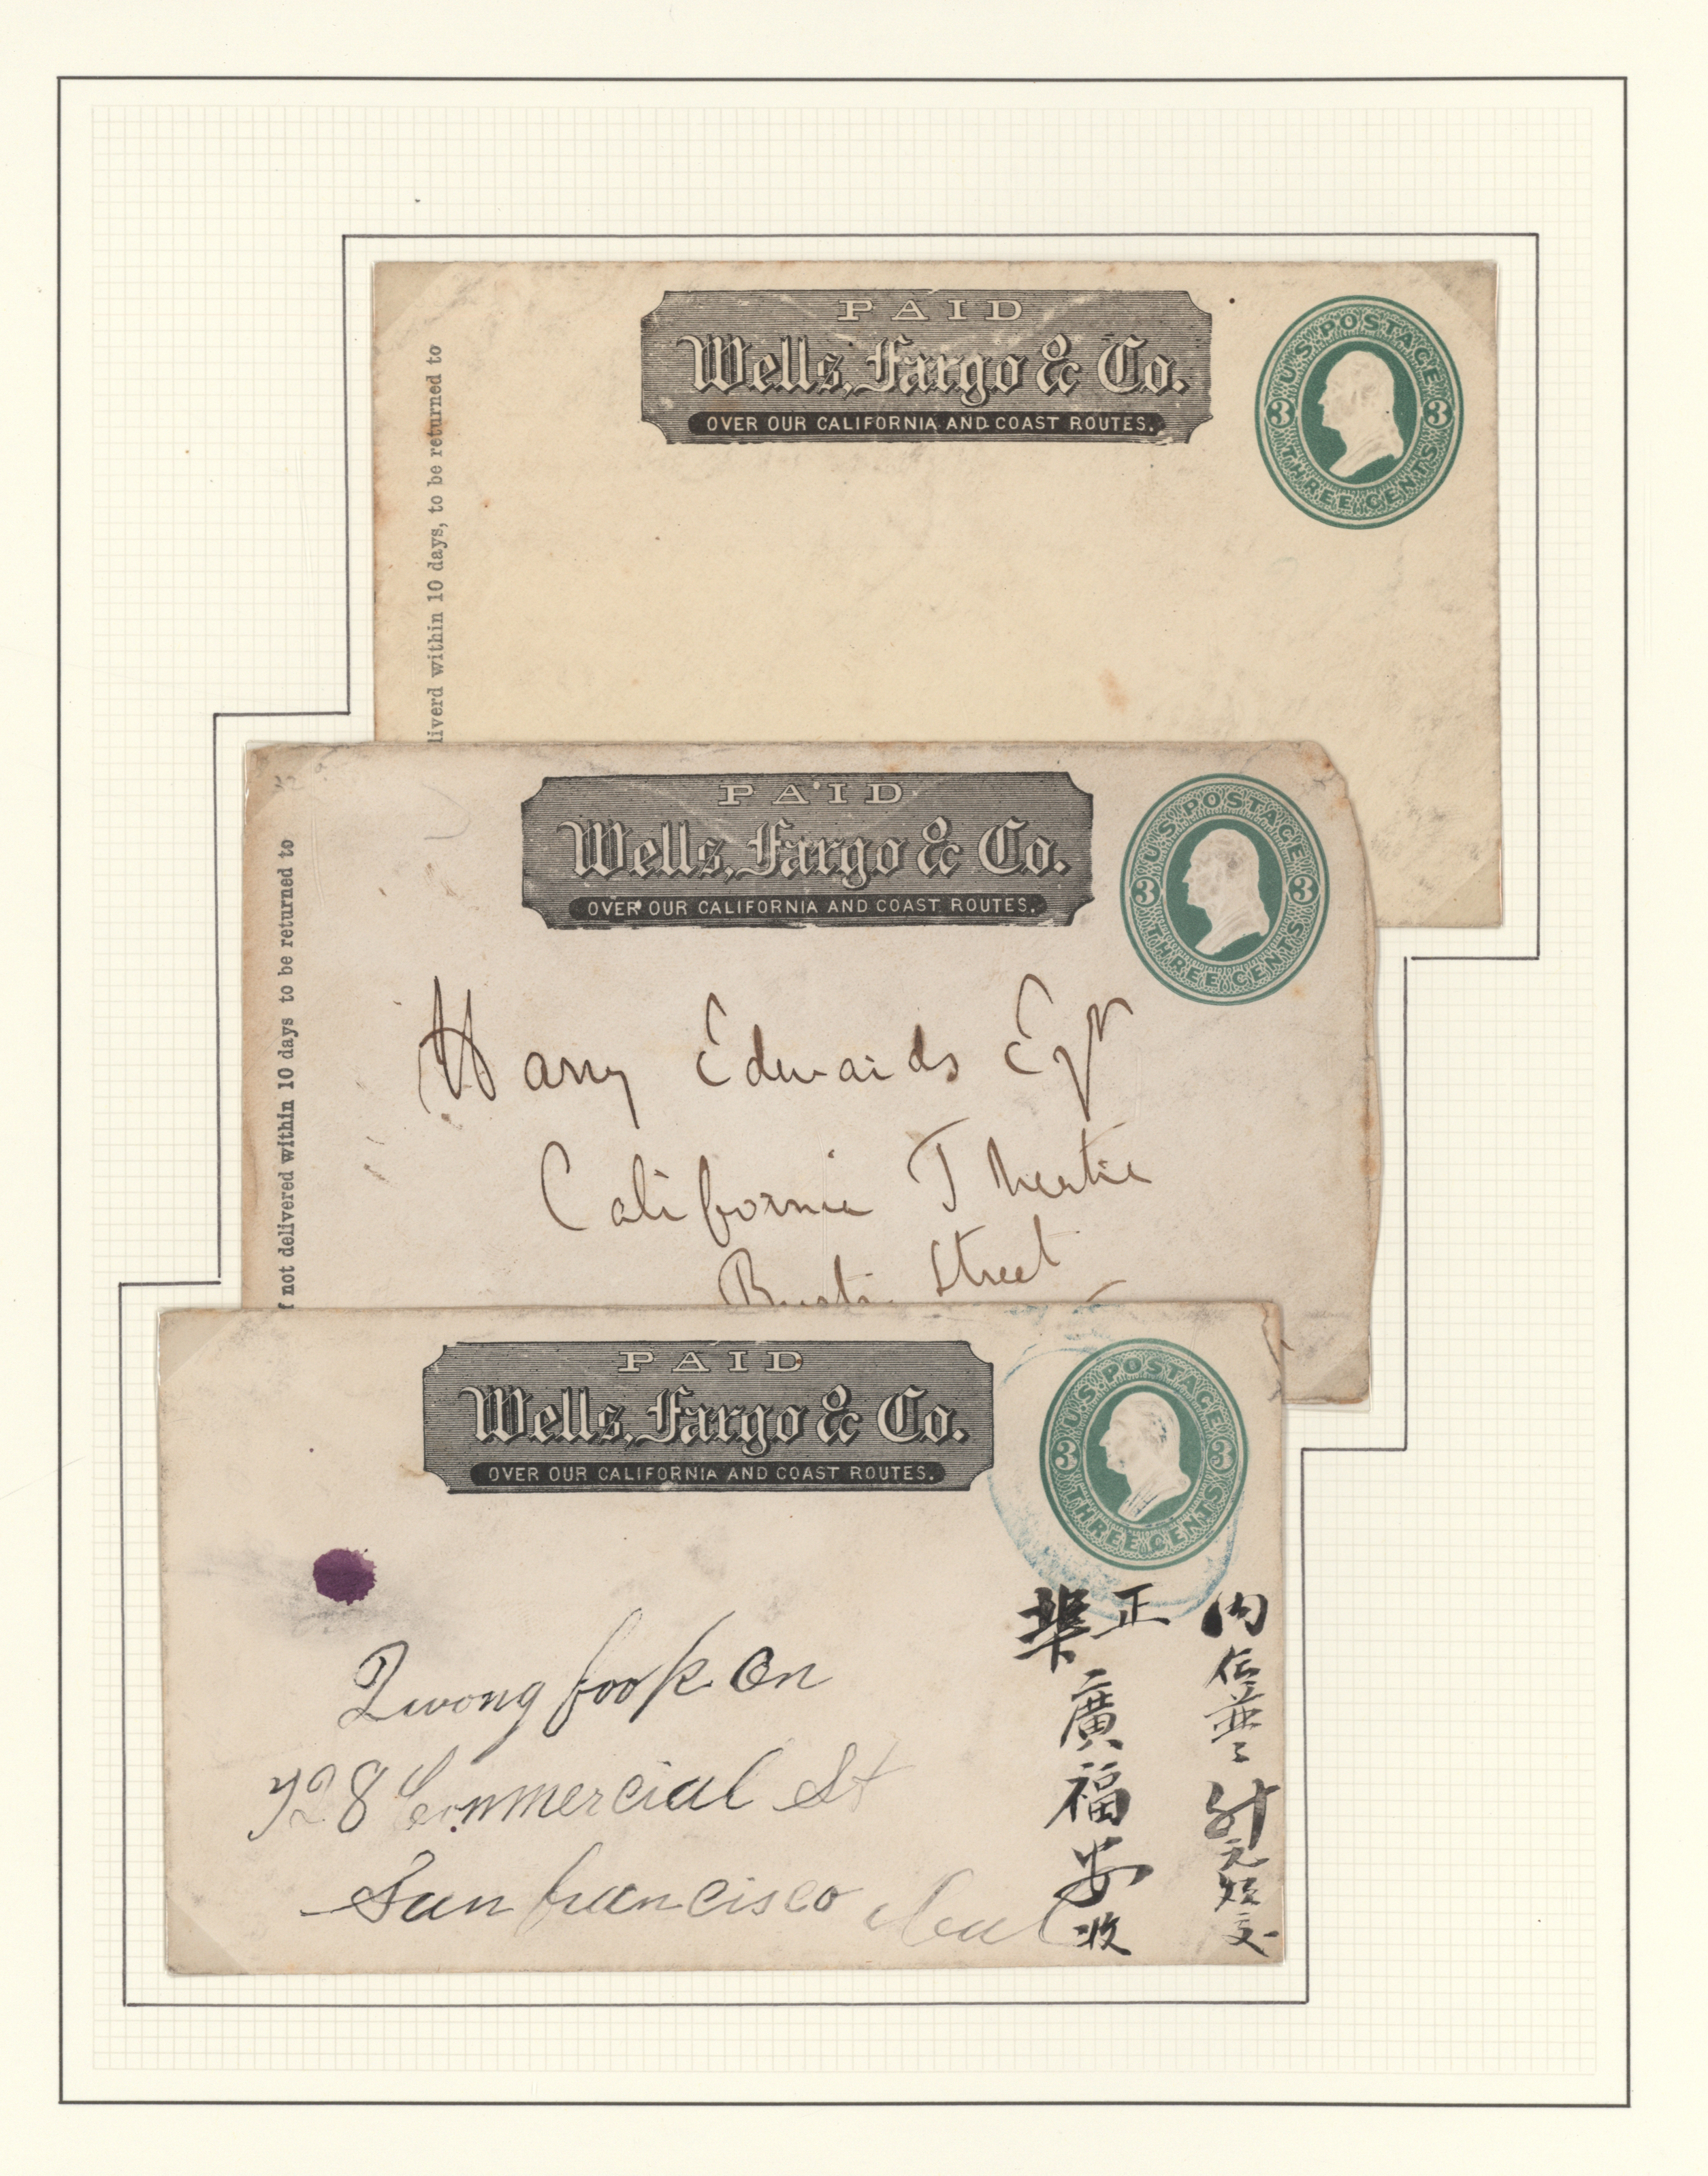 PAID
Wells, Fargo & Co.
OVER OUR CALIFORNIA AND COAST ROUTES.
U.S. POSTAGE
3 3
THREE CENTS
liverd within 10 days, to be returned to
PAID
Wells, Fargo & Co.
OVER OUR CALIFORNIA AND COAST ROUTES.
U.S. POSTAGE
3 3
THREE CENTS
f not delivered within 10 days to be returned to
Harry Edwards Esqr
California Theatre
Street
PAID
Wells, Fargo & Co.
OVER OUR CALIFORNIA AND COAST ROUTES.
U.S. POSTAGE
3 3
THREE CENTS
Quong fook On
728 Commercial St
San francisco Cal
內信並
正
廣福安收